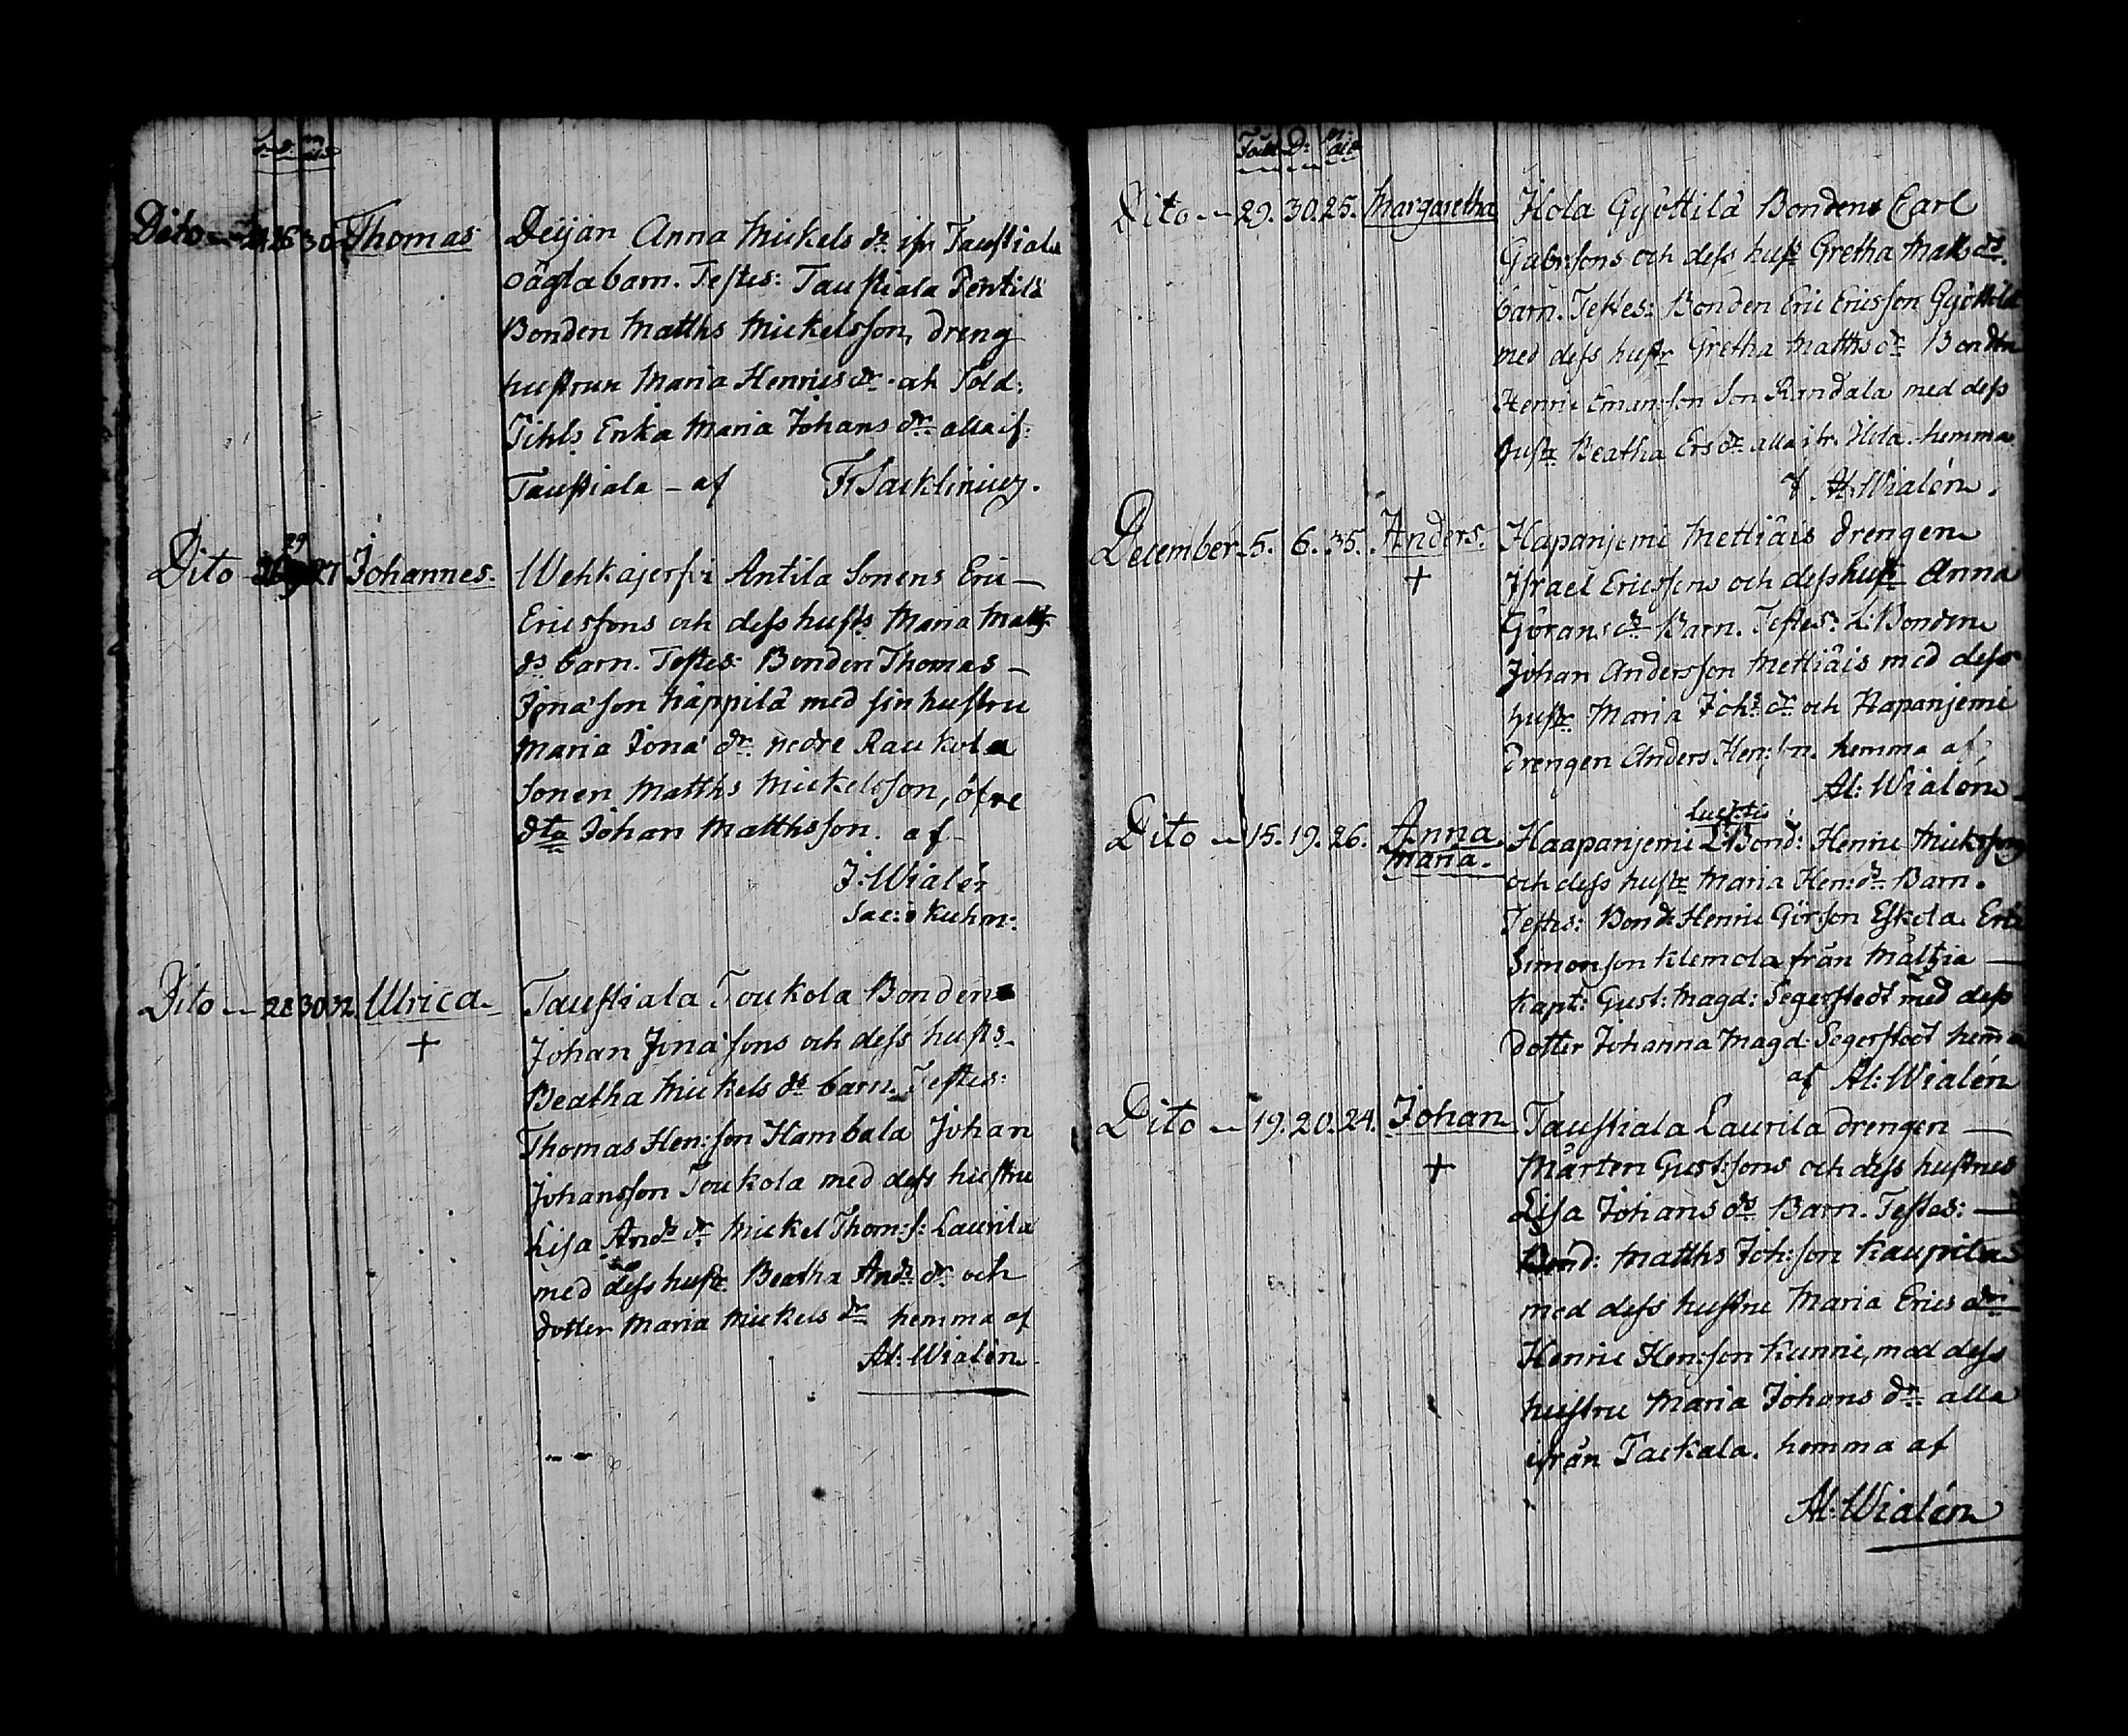 Dito 30 Thomas
Deijan Anna Mickels dr ifr Taustiala
oägta barn. Testes: Taustiala Pentilä
Bonden Matths Mickelsson, dreng
hustrun Maria Henrics dr och Sold:
Tihls Enka Maria Johans dr alla if:
Taustiala - af
Dito 29 27 Johannes.
Wehkajerfvi Antila Sonens Eric
Ericssons och dess hustrs Maria Matts
ds barn. Testes: Bonden Thomas
Jona'son Näppilä med sin hustru
Maria Jona' dr nedre Raukola
Sonen Matths Mickelsson, öfre
dto Johan Matthsson. af
J: Wialén
Sac: i Kuhm:
Dito 28 30 32 Ulrica
+
Taustiala Toukola Bonden
Johan Jona'sons och dess hustrs
Beatha Mickels ds barn. Testes:
Thomas Hen:son Hambala Johan
Johansson Toukola med dess hustru
Lisa Ands dr Mickel Thom:s: Laurila
med dess hustr Beatha Ands dr och
dotter Maria Mickels dr hemma af
Al: Wialén
Född D: M: ald
Dito 29. 30. 25. Margaretha
Hola Gyöttilä Bondens Carl
Gabr:sons och dess hustr Gretha Matts ds
barn. Testes: Bonden Eric Ericsson Gyöttilä
med dess hustr Gretha Matths dr Bonden
Henric Eman:son Son Randala med dess
hustr Beatha Ers dr alla ifr. Hola hemma
af Al: Wialén.
December 5. 6. 35. Anders.
+
Hapanjemi Mettiäis drengen
Israel Ericssons och dess hustr Anna
Görans ds Barn. Testes: L:Bonden
Johan Andersson Mettiäis med dess
hustr Maria Joh:s dr och Hapanjemi
drengen Anders Hen:son. hemma af
Al: Wialén
Dito 15. 19. 26. Anna
Maria.
Haapanjemi L:Bond: Henric Micksons
och dess hustr Maria Hen: ds Barn.
Testes: Bond: Henric Görson Eskola Eric
Simonson Klemola från Mältjia
Kapt: Gust: Magd: Segerstedt med dess
dotter Johanna Magd: Segerstedt hemma
af Al: Wialén
Dito 19. 20. 24. Johan
+
Taustiala Laurila drengen
Mårten Gust:sons och dess hustrus
Lisa Johans ds Barn. Testes:
Bond: Matths Joh:son Kaupila
med dess hustru Maria Erics dr
Henric Hen:son Kunni, med dess
hustru Maria Johans dr alla
ifrån Tackala. hemma af
Al: Wialén